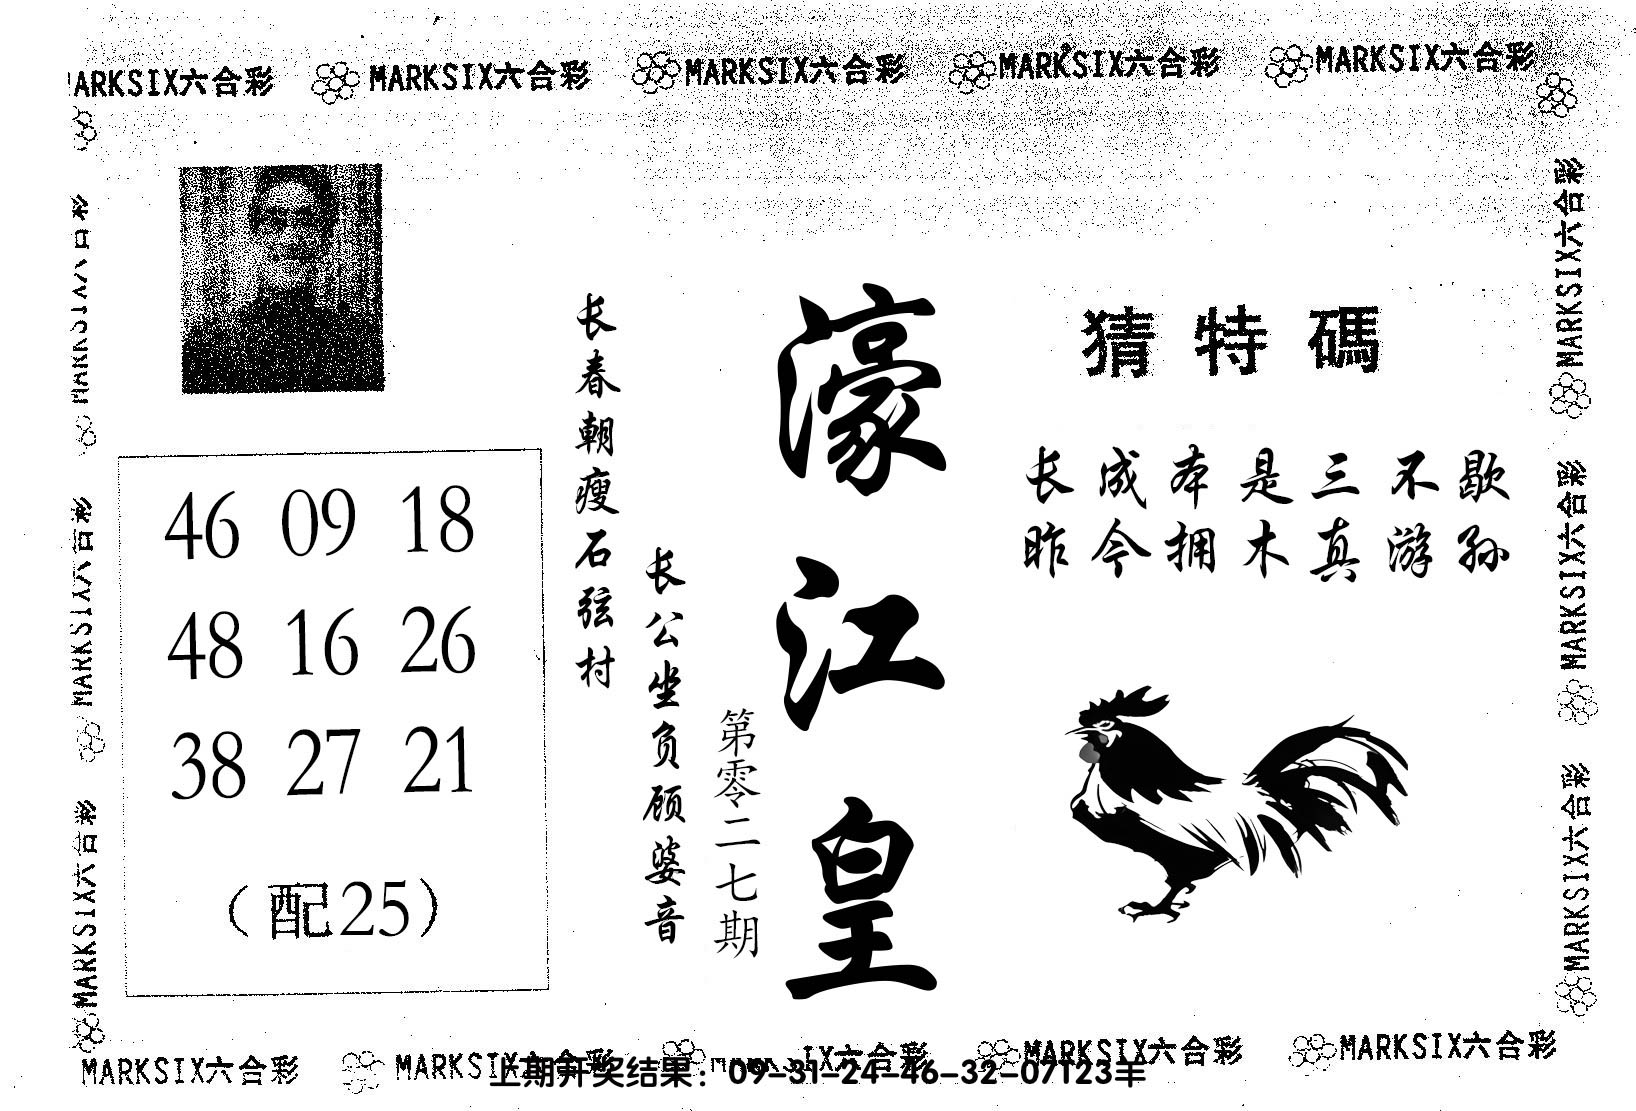 MARKSIX六合彩 MARKSIX六合彩 MARKSIX六合彩 MARKSIX六合彩 MARKSIX六合彩
猜特碼
长成本是三不歇
昨今拥木真游孙
濠江皇
第零二七期
长春朝瘦石弦村
长公坐负顾婆音
46 09 18
48 16 26
38 27 21
（配25）
MARKSIX六合彩
MARKSIX六合彩
MARKSIX六合彩
MARKSIX六合彩
MARKSIX六合彩
MARKSIX六合彩
MARKSIX六合彩 MARKSIX六合彩 IX六合彩 MARKSIX六合彩 MARKSIX六合彩
上期开奖结果：09-31-24-46-32-07T23羊